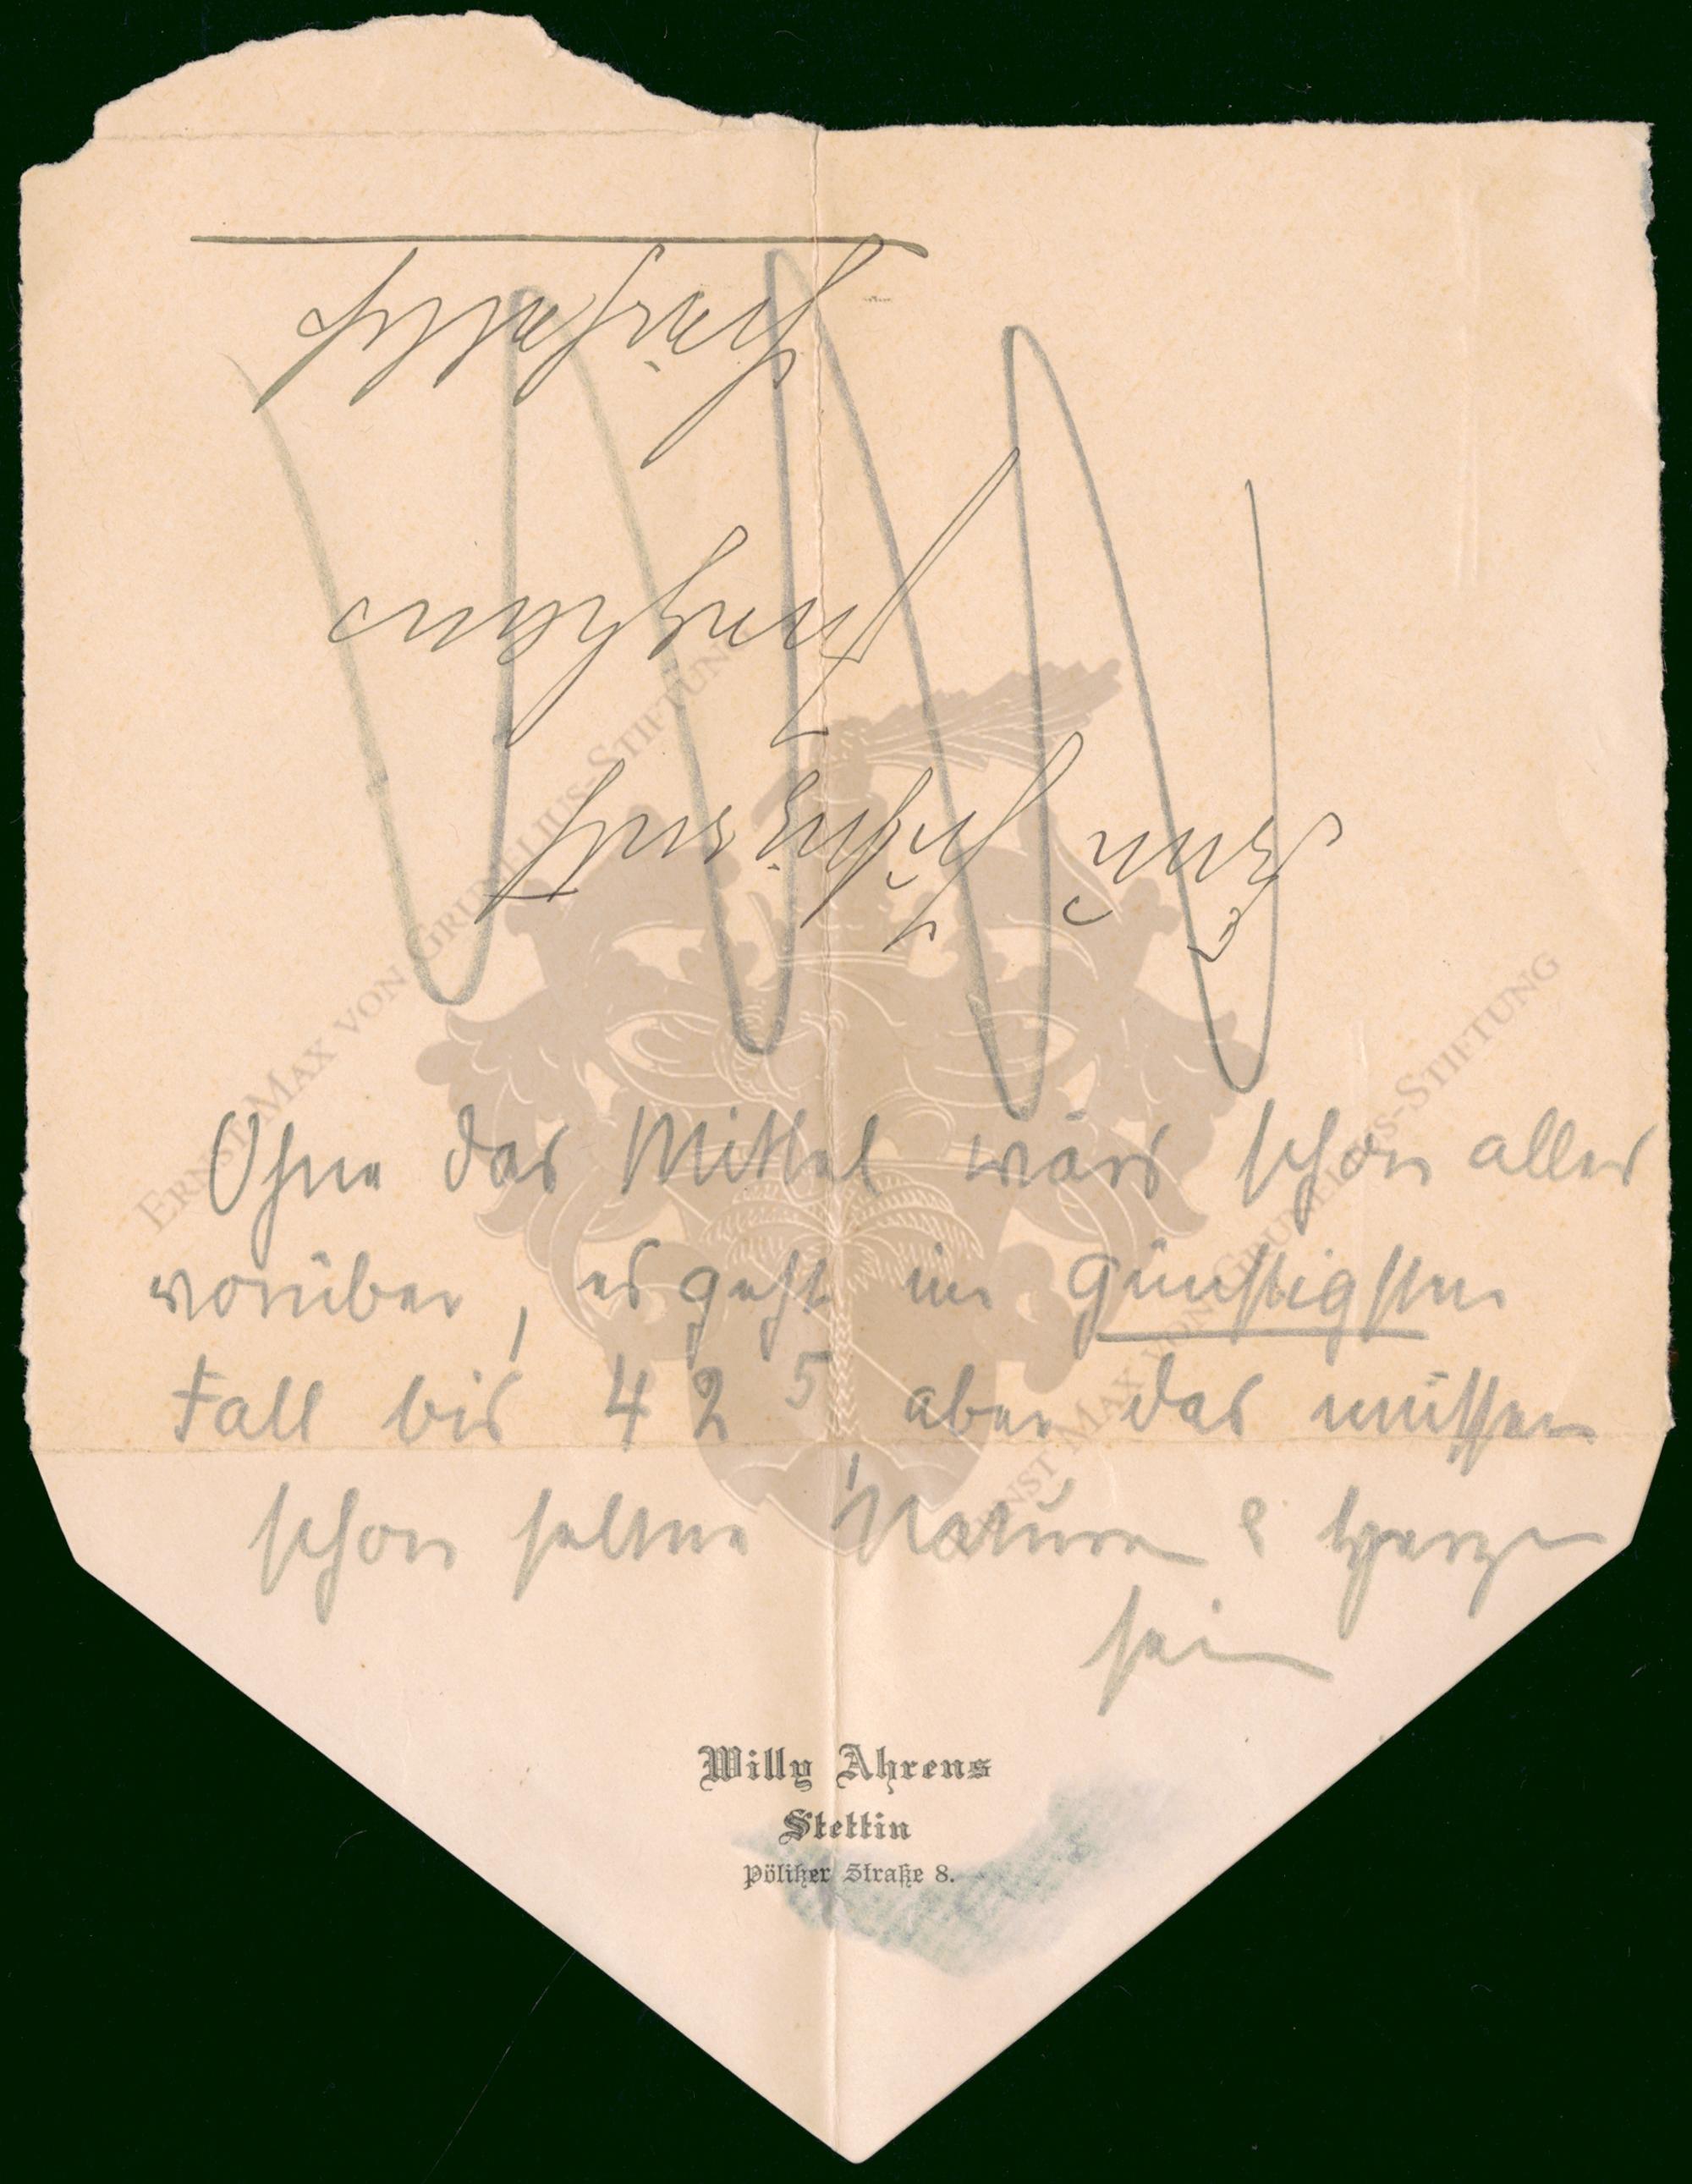 Ohne das Mittel wärs schon alles
vorüber, es geht im günstigsten
Fall bis 42 5 aber das müssen
schon seltene Naturen & Herzen
sein
Willy Ahrens
Stettin
Pölitzer Straße 8.
ERNST MAX VON GRUNELIUS-STIFTUNG
ERNST MAX VON GRUNELIUS-STIFTUNG